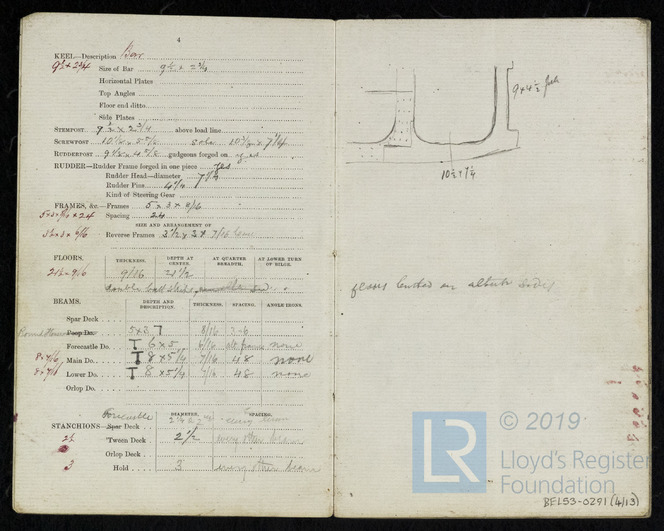 4
KEEL—Description Bar
9½ x 2¾ Size of Bar 9½ x 2¾
Horizontal Plates
Top Angles
Floor end ditto
Side Plates
STEMPOST 9½ x 2¾ above load line
SCREWPOST 10½ x 7¼
RUDDERPOST gudgeons forged on
RUDDER—Rudder Frame forced in one piece Yes
Rudder Head—diameter 7½
Rudder Pins
Kind of Steering Gear
FRAMES, &c.—Frames 5 x 3 x 8/16
Spacing 24
SIZE AND ARRANGEMENT OF
Reverse Frames 3½ x 3 x 7/16
FLOORS. THICKNESS. DEPTH AT CENTRE. AT QUARTER BREADTH. AT LOWER TURN OF BILGE.
9/16 21½
BEAMS. DEPTH AND DESCRIPTION. THICKNESS. SPACING. ANGLE IRONS.
Spar Deck
Poop Do. 5x3 8/16 3-6
Forecastle Do. 6 x 5 6/16 alt frames none
Main Do. 8 x 5¼ 7/16 48 none
Lower Do. 8 x 5¼ 7/16 48 none
Orlop Do.
Forecastle DIAMETER. SPACING.
STANCHIONS—Spar Deck
'Tween Deck 2½ every other beam
Orlop Deck
3 Hold 3 every other beam
9 x 4½
10½ x 7¼
floors lapped on alternate sides
© 2019
LR Lloyd's Register
Foundation
BEL53-0291 (4/13)